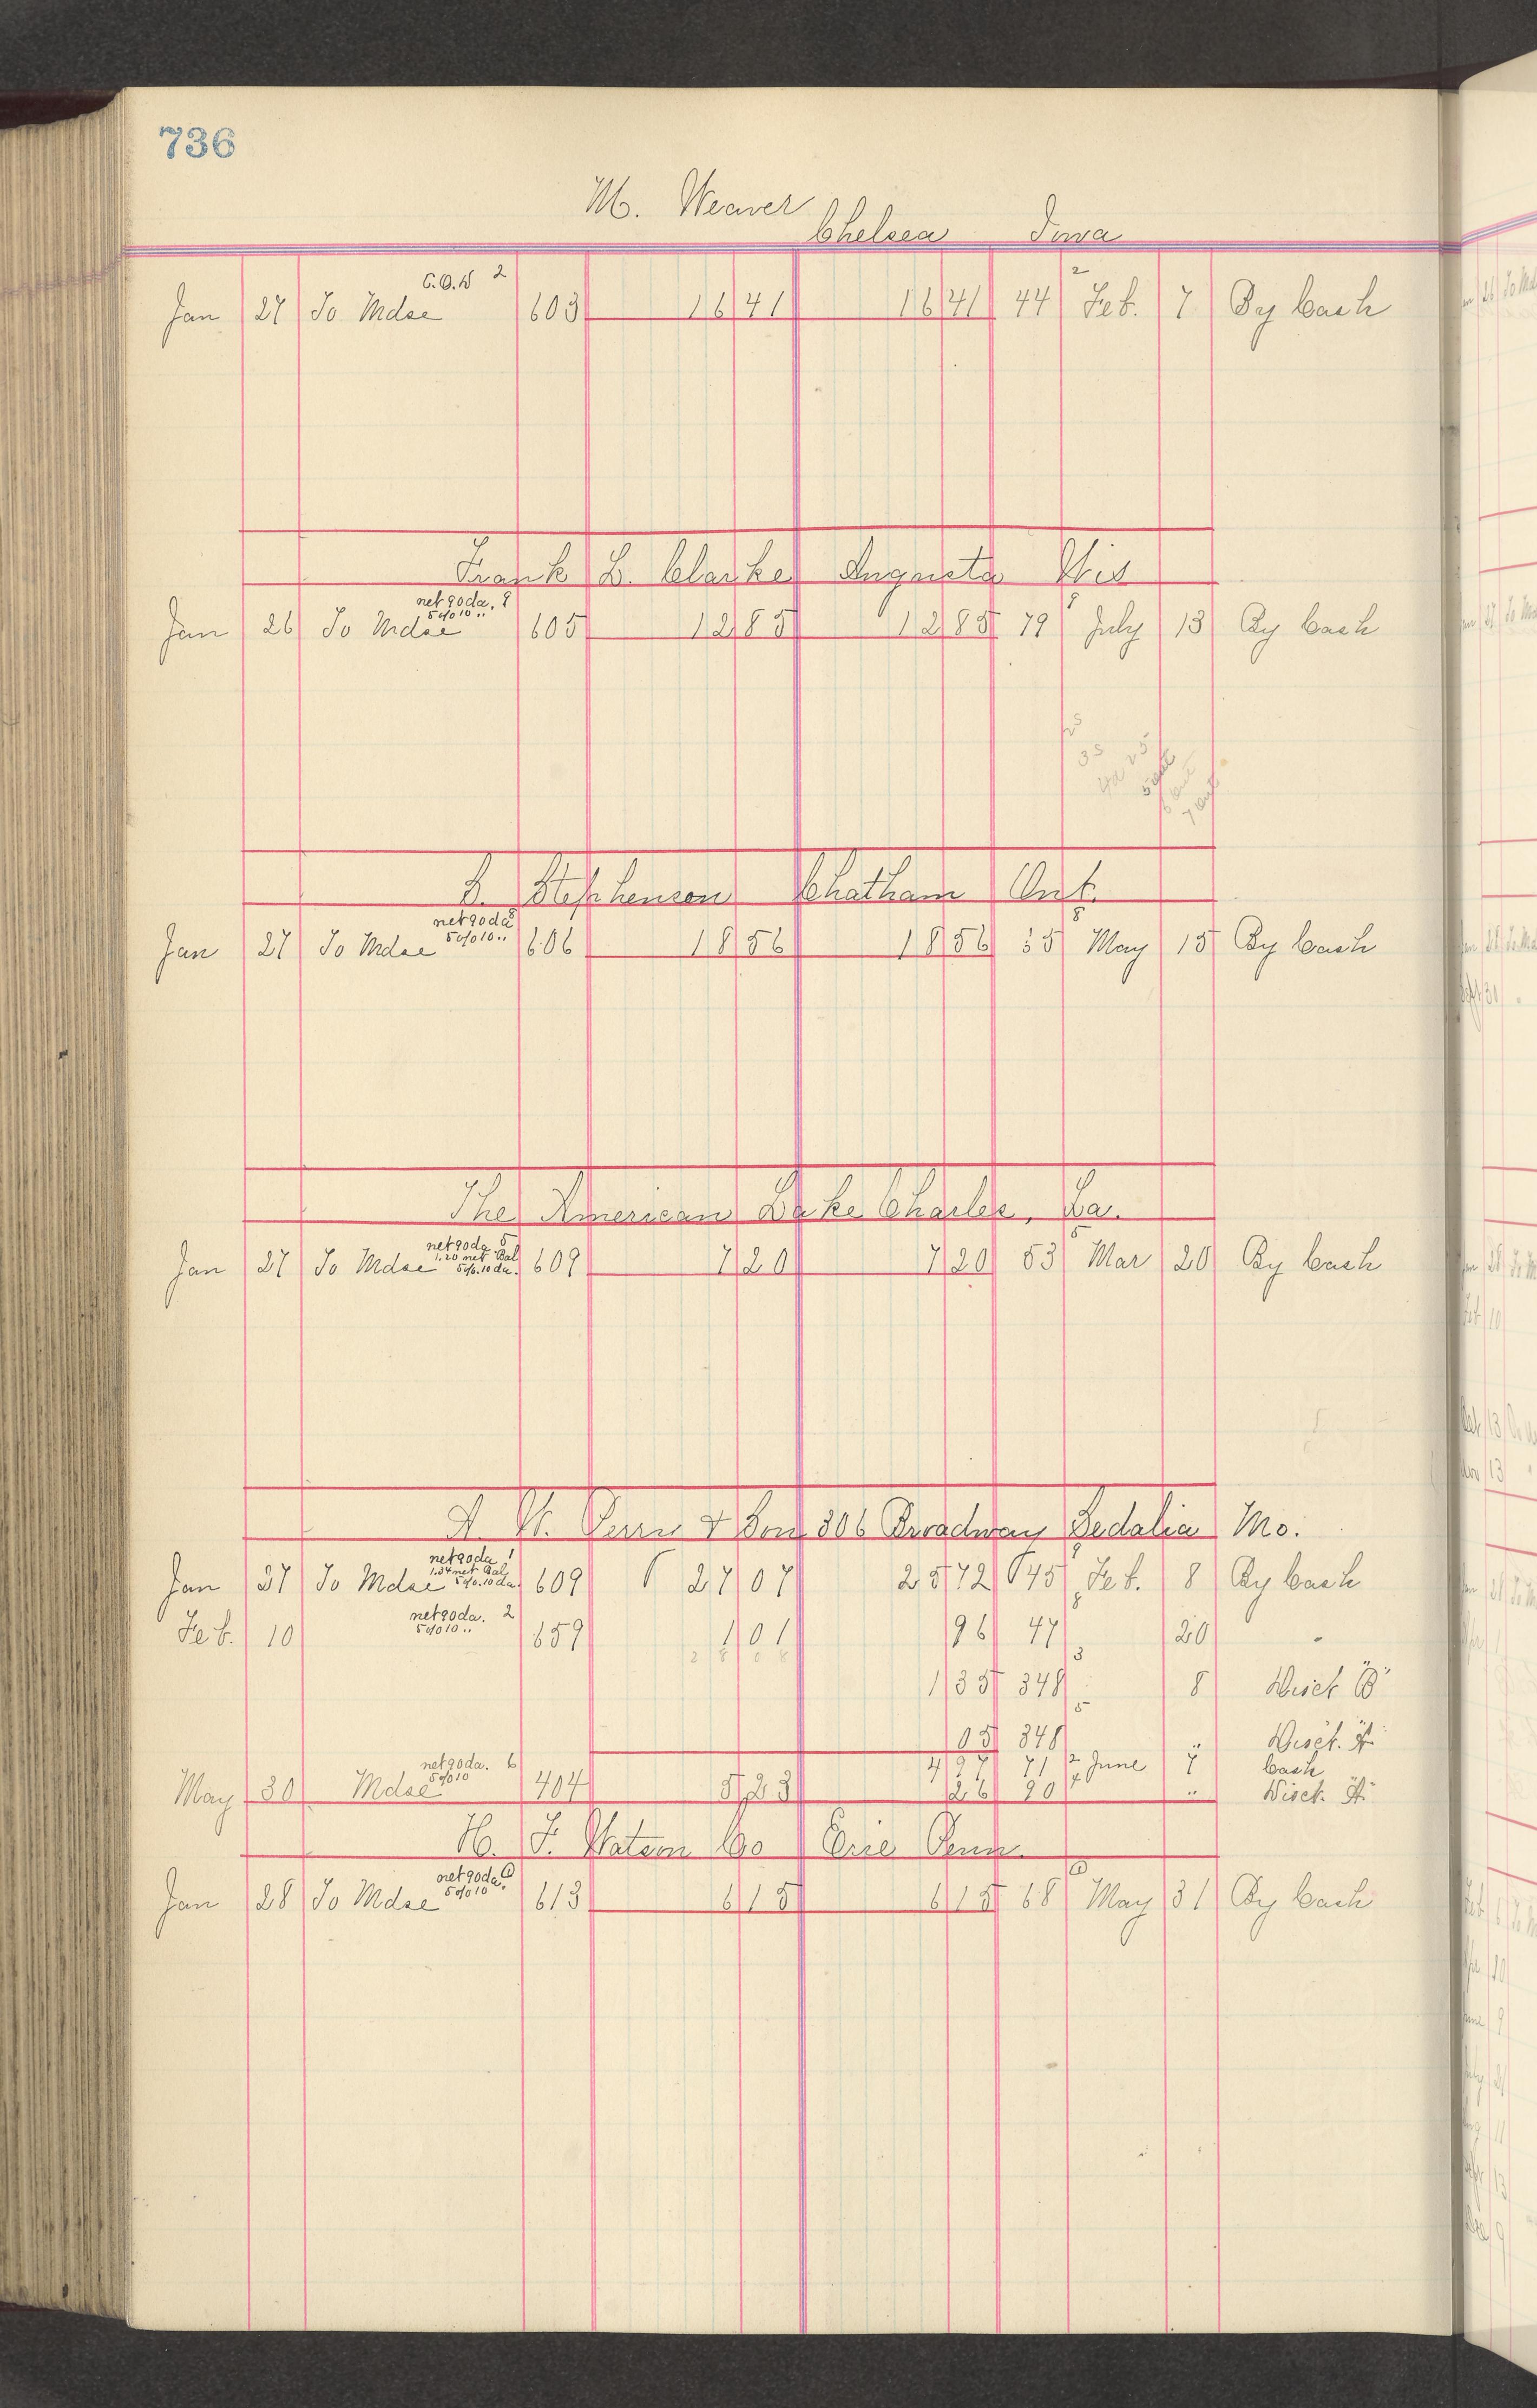 736
M. Weaver
Chelsea Iowa
C.O.D 2
Jan 27 To Mdse 603 16 41 16 41 44 2 Feb. 7 By Cash
Frank L. Clarke Augusta Wis
net 90 da. 9
5% 10 "
Jan 26 To Mdse 605 12 85 12 85 79 9 July 13 By Cash
Stephenson Chatham Ont.
net 90 da
5% 10 "
Jan 27 To Mdse 606 18 56 18 56 35 May 15 By Cash
The American Lake Charles, La.
net 90 da 5
1.20 net Bal
5% 10 da.
Jan 27 To Mdse 609 7 20 7 20 53 5 Mar 20 By Cash
& Son 306 Broadway Sedalia Mo.
net 90 da 1
1.34 net Bal
5% 10 da.
Jan 27 To Mdse 609 27 07 25 72 45 Feb. 8 By Cash
net 90 da. 2
5% 10 "
Feb. 10 659 1 01 96 47 20 "
28 08
1 35 348 3 8 Disct B
05 348 5 Disct. A
net 90 da. 6
5% 10
4 97 71 2 June 7 Cash
May 30 Mdse 404 5 23 26 90 " Disct. A
H. F. Watson Co Erie Penn.
net 90 da
5% 10
Jan 28 To Mdse 613 6 15 6 15 68 May 31 By Cash